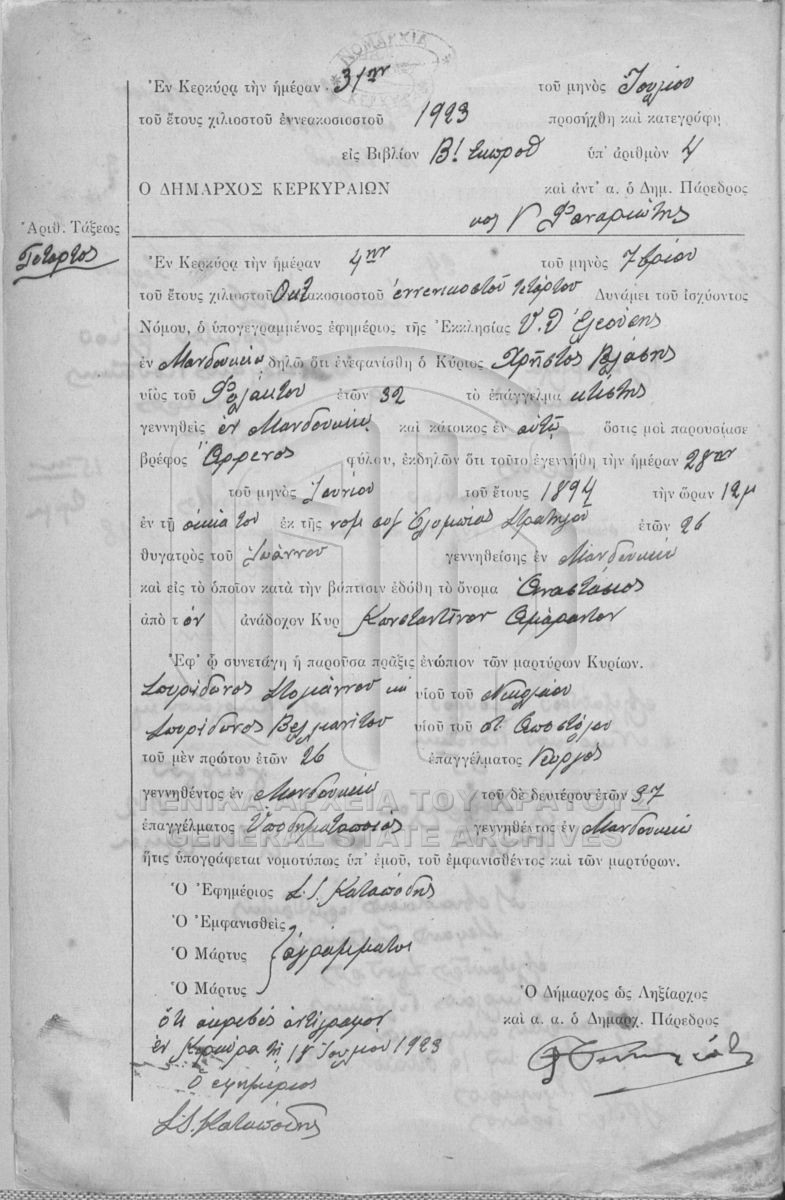 ΝΟΜΑΡΧΙΑ
Ἐν Κερκύρᾳ τὴν ἡμέραν 31ην τοῦ μηνὸς Ἰουλίου
τοῦ ἔτους χιλιοστοῦ ἐννεακοσιοστοῦ 1923 προσήχθη καὶ κατεγράφη
εἰς Βιβλίον Β! ὑπ' ἀριθμὸν 4
Ο ΔΗΜΑΡΧΟΣ ΚΕΡΚΥΡΑΙΩΝ καὶ ἀντ' α. ὁ Δημ. Πάρεδρος
Φαναριώτης
Ἀριθ. Τάξεως
Τέταρτος
Ἐν Κερκύρᾳ τὴν ἡμέραν 4ην τοῦ μηνὸς 7βρίου
τοῦ ἔτους χιλιοστοῦ Οκτακοσιοστοῦ ἐννενικοστοῦ τετάρτου Δυνάμει τοῦ ἰσχύοντος
Νόμου, ὁ ὑπογεγραμμένος ἐφημέριος τῆς Ἐκκλησίας Υ.Θ Ἐλεούσης
ἐν Μανδουκίῳ δηλῶ ὅτι ἐνεφανίσθη ὁ Κύριος Χρῆστος Βλάσης
υἱὸς τοῦ Φιλάκτου ἐτῶν 32 τὸ ἐπάγγελμα κτίστης
γεννηθεὶς ἐν Μανδουκίῳ καὶ κάτοικος ἐν αὐτῷ ὅστις μοὶ παρουσίασε
βρέφος Ἄρρενος φύλου, ἐκδηλῶν ὅτι τοῦτο ἐγεννήθη τὴν ἡμέραν 28ην
τοῦ μηνὸς Ἰουνίου τοῦ ἔτους 1894 τὴν ὥραν 12μ
ἐν τῇ οἰκίᾳ του ἐκ τῆς νομ συζ Ὀλυμπίας Στρατηγοῦ ἐτῶν 26
θυγατρὸς τοῦ Ἰωάννου γεννηθείσης ἐν Μανδουκίῳ
καὶ εἰς τὸ ὁποῖον κατὰ τὴν βάπτισιν ἐδόθη τὸ ὄνομα Ἀναστάσιος
ἀπὸ τὸν ἀνάδοχον Κυρ Κωνσταντῖνον Ἀμάραντον
Ἐφ' ᾧ συνετάγη ἡ παροῦσα πρᾶξις ἐνώπιον τῶν μαρτύρων Κυρίων.
Σπυρίδωνος υἱοῦ τοῦ Νικολάου
Σπυρίδωνος Βελμανίτου υἱοῦ τοῦ Ἀποστόλου
τοῦ μὲν πρώτου ἐτῶν 26 ἐπαγγέλματος Γεωργὸς
γεννηθέντος ἐν Μανδουκίῳ τοῦ δὲ δευτέρου ἐτῶν 37
ΓΕΝΙΚΑ ΑΡΧΕΙΑ ΤΟΥ ΚΡΑΤΟΥΣ
ἐπαγγέλματος Ὑποδηματοποιὸς γεννηθέντος ἐν Μανδουκίῳ
GENERAL STATE ARCHIVES
ἥτις ὑπογράφεται νομοτύπως ὑπ' ἐμοῦ, τοῦ ἐμφανισθέντος καὶ τῶν μαρτύρων.
Ὁ Ἐφημέριος Σ. Σ. Καταπόδης
Ὁ Ἐμφανισθεὶς
Ὁ Μάρτυς ἀγράμματοι
Ὁ Μάρτυς
Ὁ Δήμαρχος ὡς Ληξίαρχος
ὅτι ἀκριβὲς ἀντίγραφον καὶ α. α. ὁ Δημαρχ. Πάρεδρος
ἐν Κερκύρᾳ τῇ 18 Ἰουλίου 1923
Ὁ ἐφημέριος
Σ. Σ. Καταπόδης